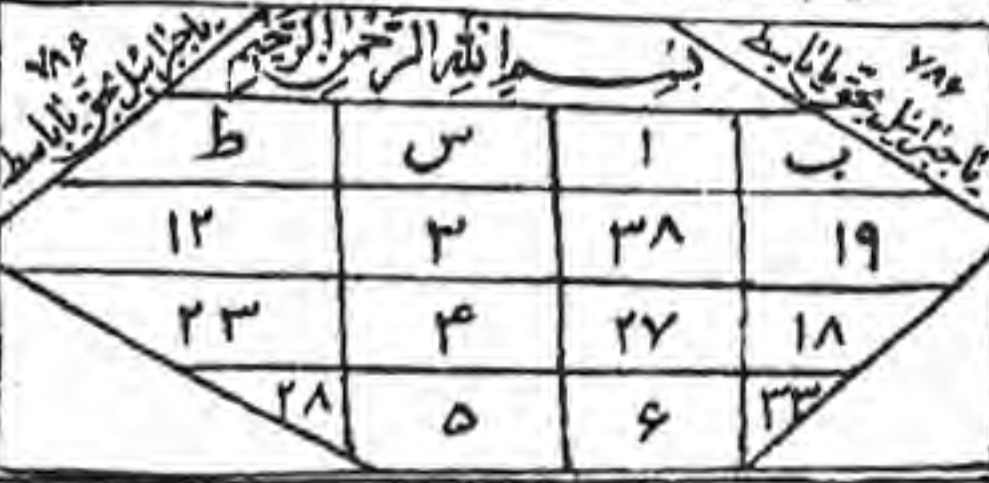 بِسْمِ اللهِ الرَّحْمٰنِ الرَّحِيْمِ
۷۸۶
یا جبرائیل بحق یا باسط
۷۸۶
یا جبرائیل بحق یا باسط
ب ا س ط
۱۹ ۳۸ ۳ ۱۲
۱۸ ۲۷ ۴ ۲۳
۳۳ ۶ ۵ ۲۸